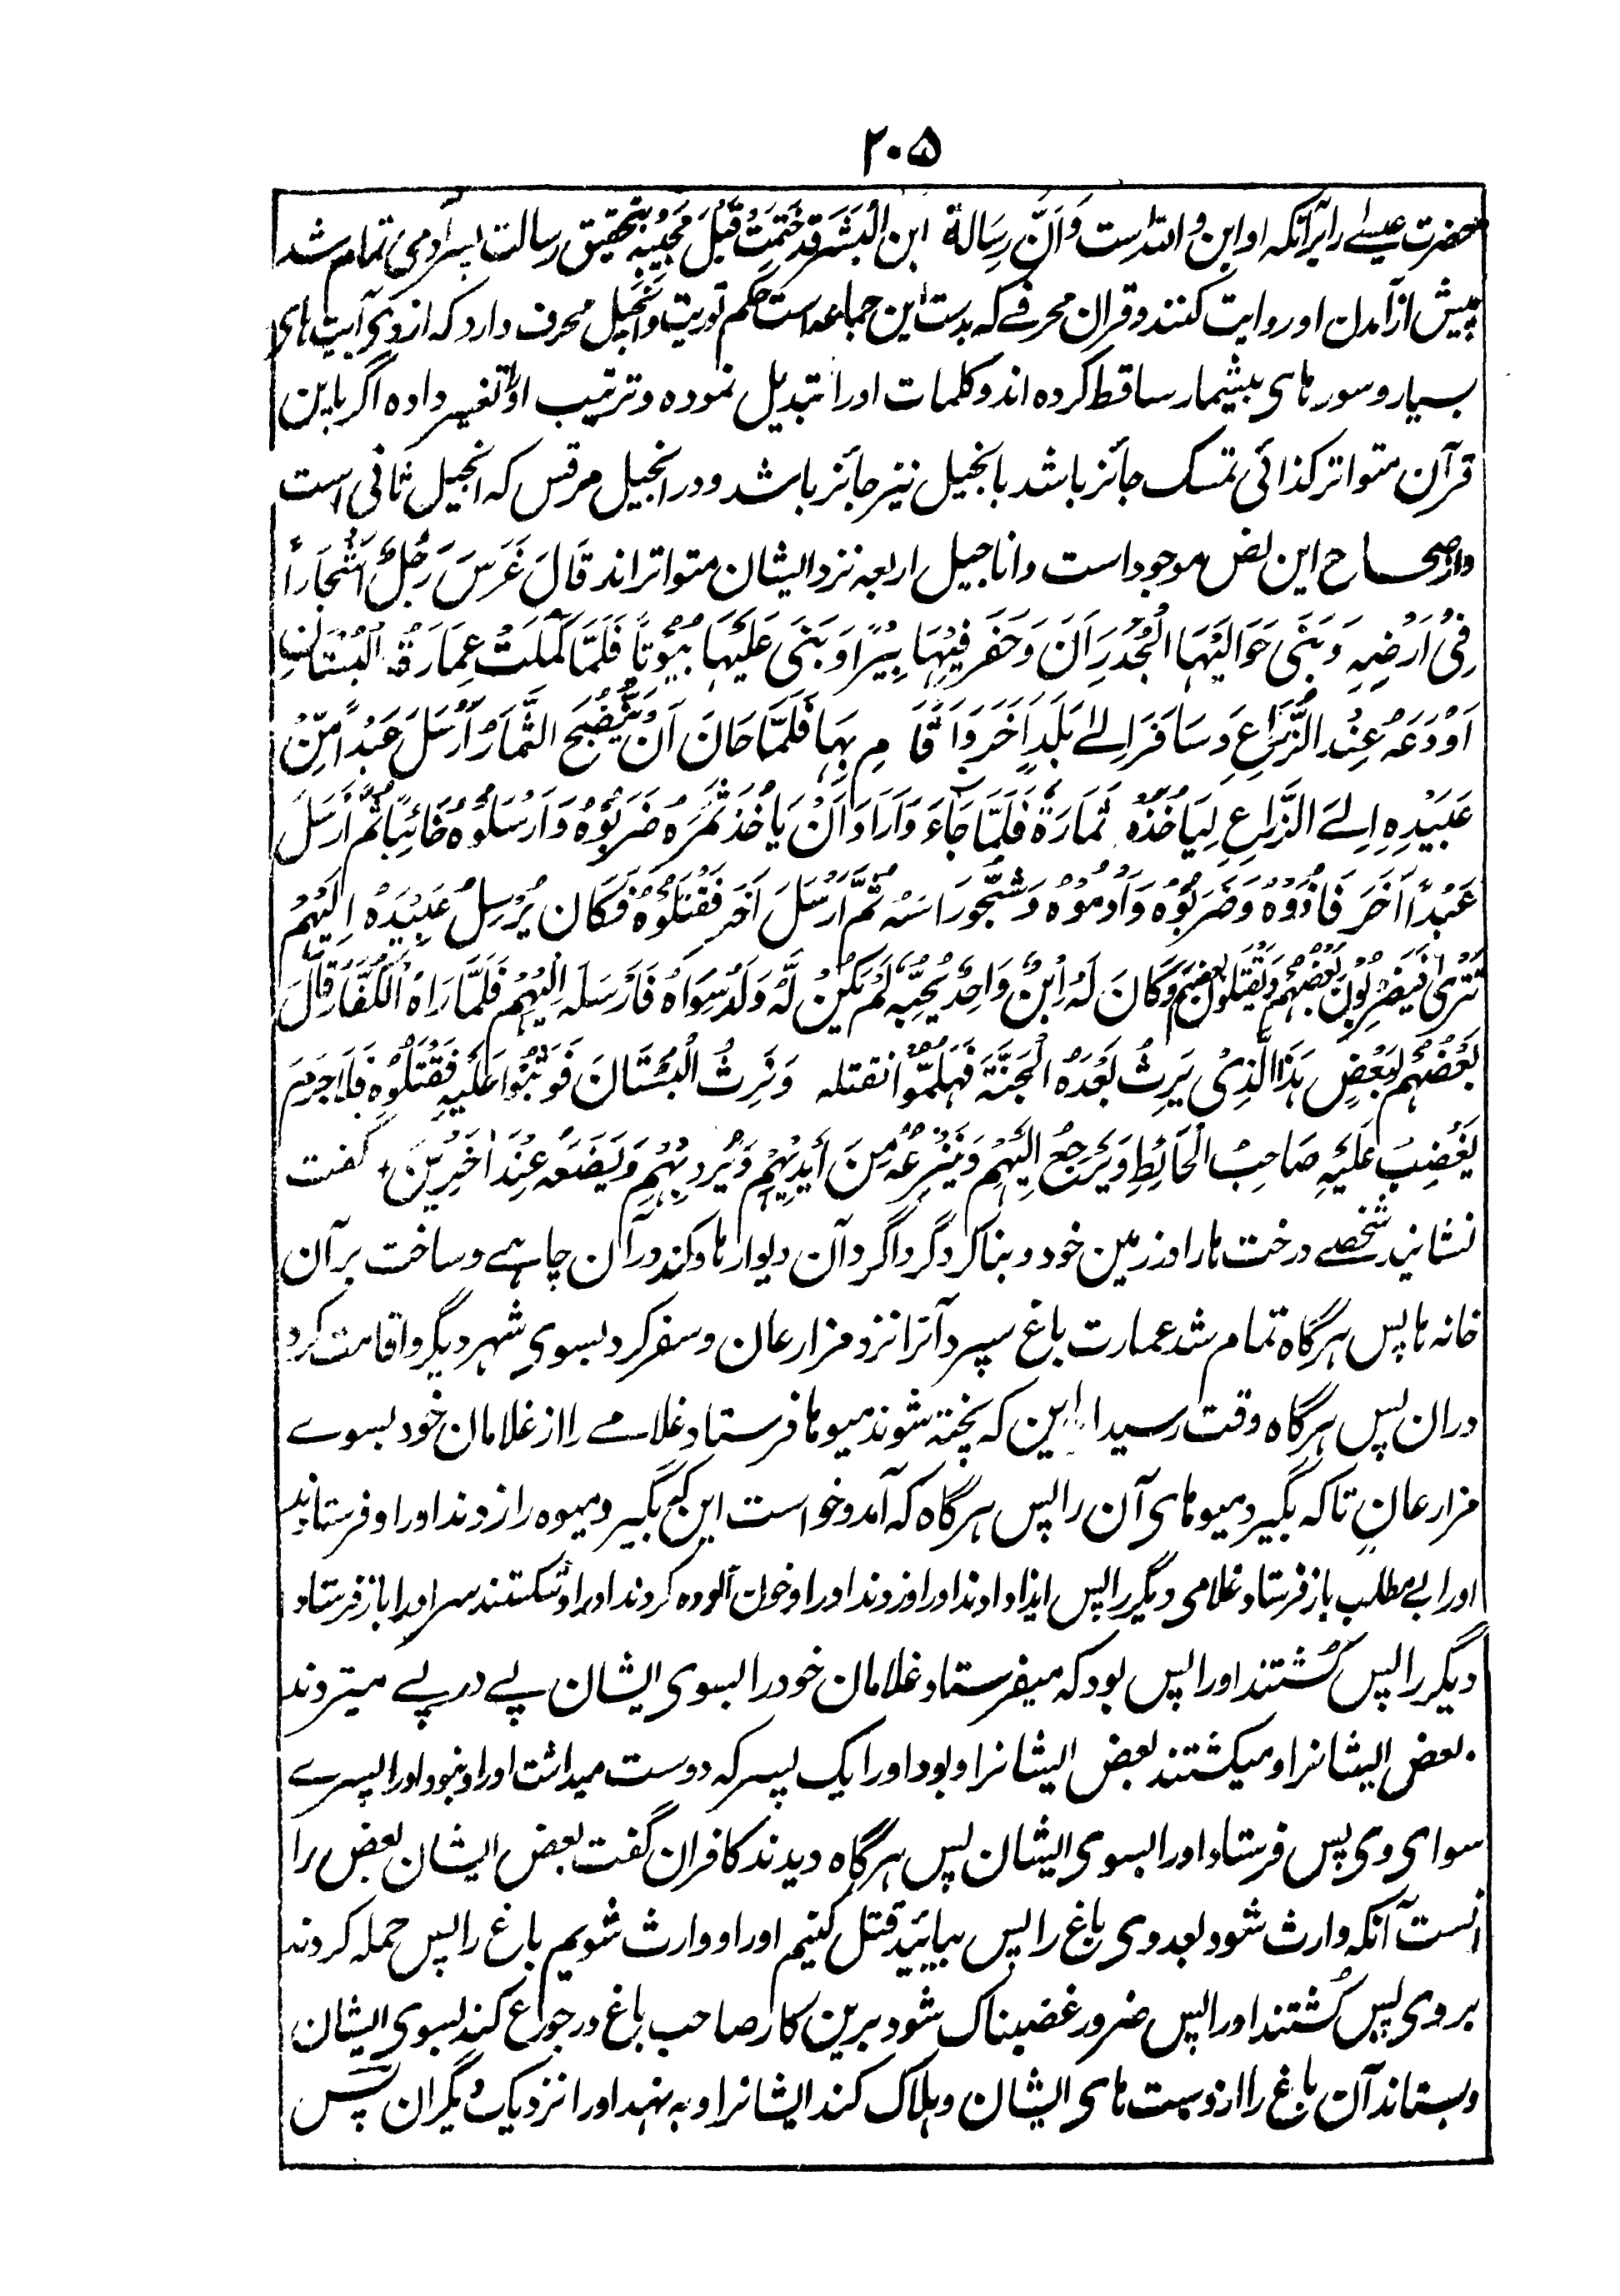 ۲۰۵
حضرت عیسے را برآنکہ او ابن و اللہ ست وَاَنَّ رِسَالۃَ ابن الْبَشَرِ قد خَتَمَتْ قَبْلَ مَجِیْئِہٖ بتحقیق رسالت پسر آدمی تمام شد
پیش از آمدن او روایت کنند و قران محرفے کہ بدست این جماعہ است حکم توریت و انجیل محرف دارد کہ از وی آیت ہای
بسیار و سورہای بیشمار ساقط کردہ اند و کلمات اورا تبدیل نمودہ و ترتیب اورا تغییر دادہ اگر باین
قرآن متواتر کذائی تمسک جائز باشد بانجیل نیز جائز باشد و در انجیل مرقس کہ انجیل ثانی است
واز صحاح این نص موجود است و اناجیل اربعہ نزد ایشان متواتر اند قَالَ غَرَسَ رَجُلٌ اَشْجَاراً
فِیْ اَرْضِہٖ وَبَنَی حَوَالَیْہَا الْجُدْرَانَ وَحَفَرَ فِیْہَا بِیْرًا وَبَنَی عَلَیْہَا بُیُوْتاً فَلَمَّا کَمُلَتْ عِمَارَۃُ الْبُسْتَانِ
اَوْدَعَہُ عِنْدَ الزُّرَّاعِ وَسَافَرَ اِلےٰ بَلَدٍ اٰخَرَ وَاَقَامِ بِہَا فَلَمَّا حَانَ اَنْ یَّنْضُجَ الثِّمَارُ اَرْسَلَ عَبْداً مِّنْ
عَبِیْدِہٖ اِلےَ الزُّرَّاعِ لِیَاخُذَہُ ثمَارَہٗ فَلَمَّا جَاءَ وَاَرَادَ اَنْ یَاْخُذَ ثَمَرَہُ ضَرَبُوْہُ وَاَرْسَلُوْہُ خَائِبًا ثُمَّ اَرْسَلَ
عَبْداً اٰخَرَ فَاٰذَوْہُ وَضَرَبُوْہُ وَاَدْمُوْہُ وَشَجُّوْرَاسَہُ ثُمَّ اَرْسَلَ اٰخَرَ فَقَتَلُوْہُ فَکَان یُرْسِلُ عَبِیْدَہُ اِلَیْہِمْ
تَتْرٰی فَیَضْرِبُوْنَ بَعْضَہُمْ وَیَقْتُلُوْنَ بَعْضَہُمْ وَکَانَ لَہُ اِبْنٌ وَاحِدٌ یُحِبُّہٗ لَمْ یَکُنْ لَہُ وَلَدٌ سِوَاہُ فَاَرْسَلَہ اِلَیْہِمْ فَلَمَّا رَاہُ الْکُفَّارُ قَالَ
بَعْضُہُمْ لِبَعْضٍ ہٰذَا الَّذِیْ یَرِثُ بَعْدَہُ الْجَنَّۃَ فَہَلُمُّوْا نقتلہ وَنَرِثُ الْبُسْتَانَ فَوَثَبُوْا عَلَیْہِ فَقَتَلُوْہُ فَلَا جَرَمَ
یَغْضِبُ عَلَیْہِ صَاحِبُ الْحَائِطِ وَیَرْجِعُ اِلَیْہِمْ وَیَنْزِعُہُ مِنَ اَیْدِیْہِمْ وَیُرْدِیْہِمْ وَیَضَعُہ عِنْدَ اٰخَرِیْنَ گفت
نشانید شخصے درخت ہارا در زمین خود و بنا کرد گرداگرد آن دیوارہا و کند در آن چاہے و ساخت بر آن
خانہ ہا پس ہرگاہ تمام شد عمارت باغ سپرد آنرا نزد مزارعان و سفر کرد بسوی شہر دیگر و اقامت کرد
دران پس ہرگاہ وقت رسید این کہ پختہ شوند میوہا فرستاد غلامے را از غلامان خود بسوے
مزارعان تا کہ بگیرد میوہای آن را پس ہرگاہ کہ آمد و خواست این کہ بگیرد میوہ را زدند اورا و فرستادند
اورا بے مطلب باز فرستاد غلامی دیگر را پس ایذا دادند اورا و زدند اورا و خون آلودہ کردند اورا و شکستند سر اورا باز فرستاد
دیگر را پس کُشتند اورا پس بود کہ میفرستاد غلامان خود را بسوی ایشان پے درپے میزدند
بعض ایشانرا و میکشتند بعض ایشانرا و بود اورا یک پسر کہ دوست میداشت اورا و نبود اورا پسرے
سوای وی پس فرستاد اورا بسوی ایشان پس ہرگاہ دیدند کافران گفت بعض ایشان بعض را
انست آنکہ وارث شود بعد وی باغ را پس بیائید قتل کنیم اورا و وارث شویم باغ را پس حملہ کردند
بروی پس کُشتند اورا پس ضرور غضبناک شود برین کار صاحب باغ و رجوع کند بسوی ایشان
وبستاند آن باغ را از دست ہای ایشان و ہلاک کند ایشانرا و بہ نہد اورا نزدیک دیگران پس